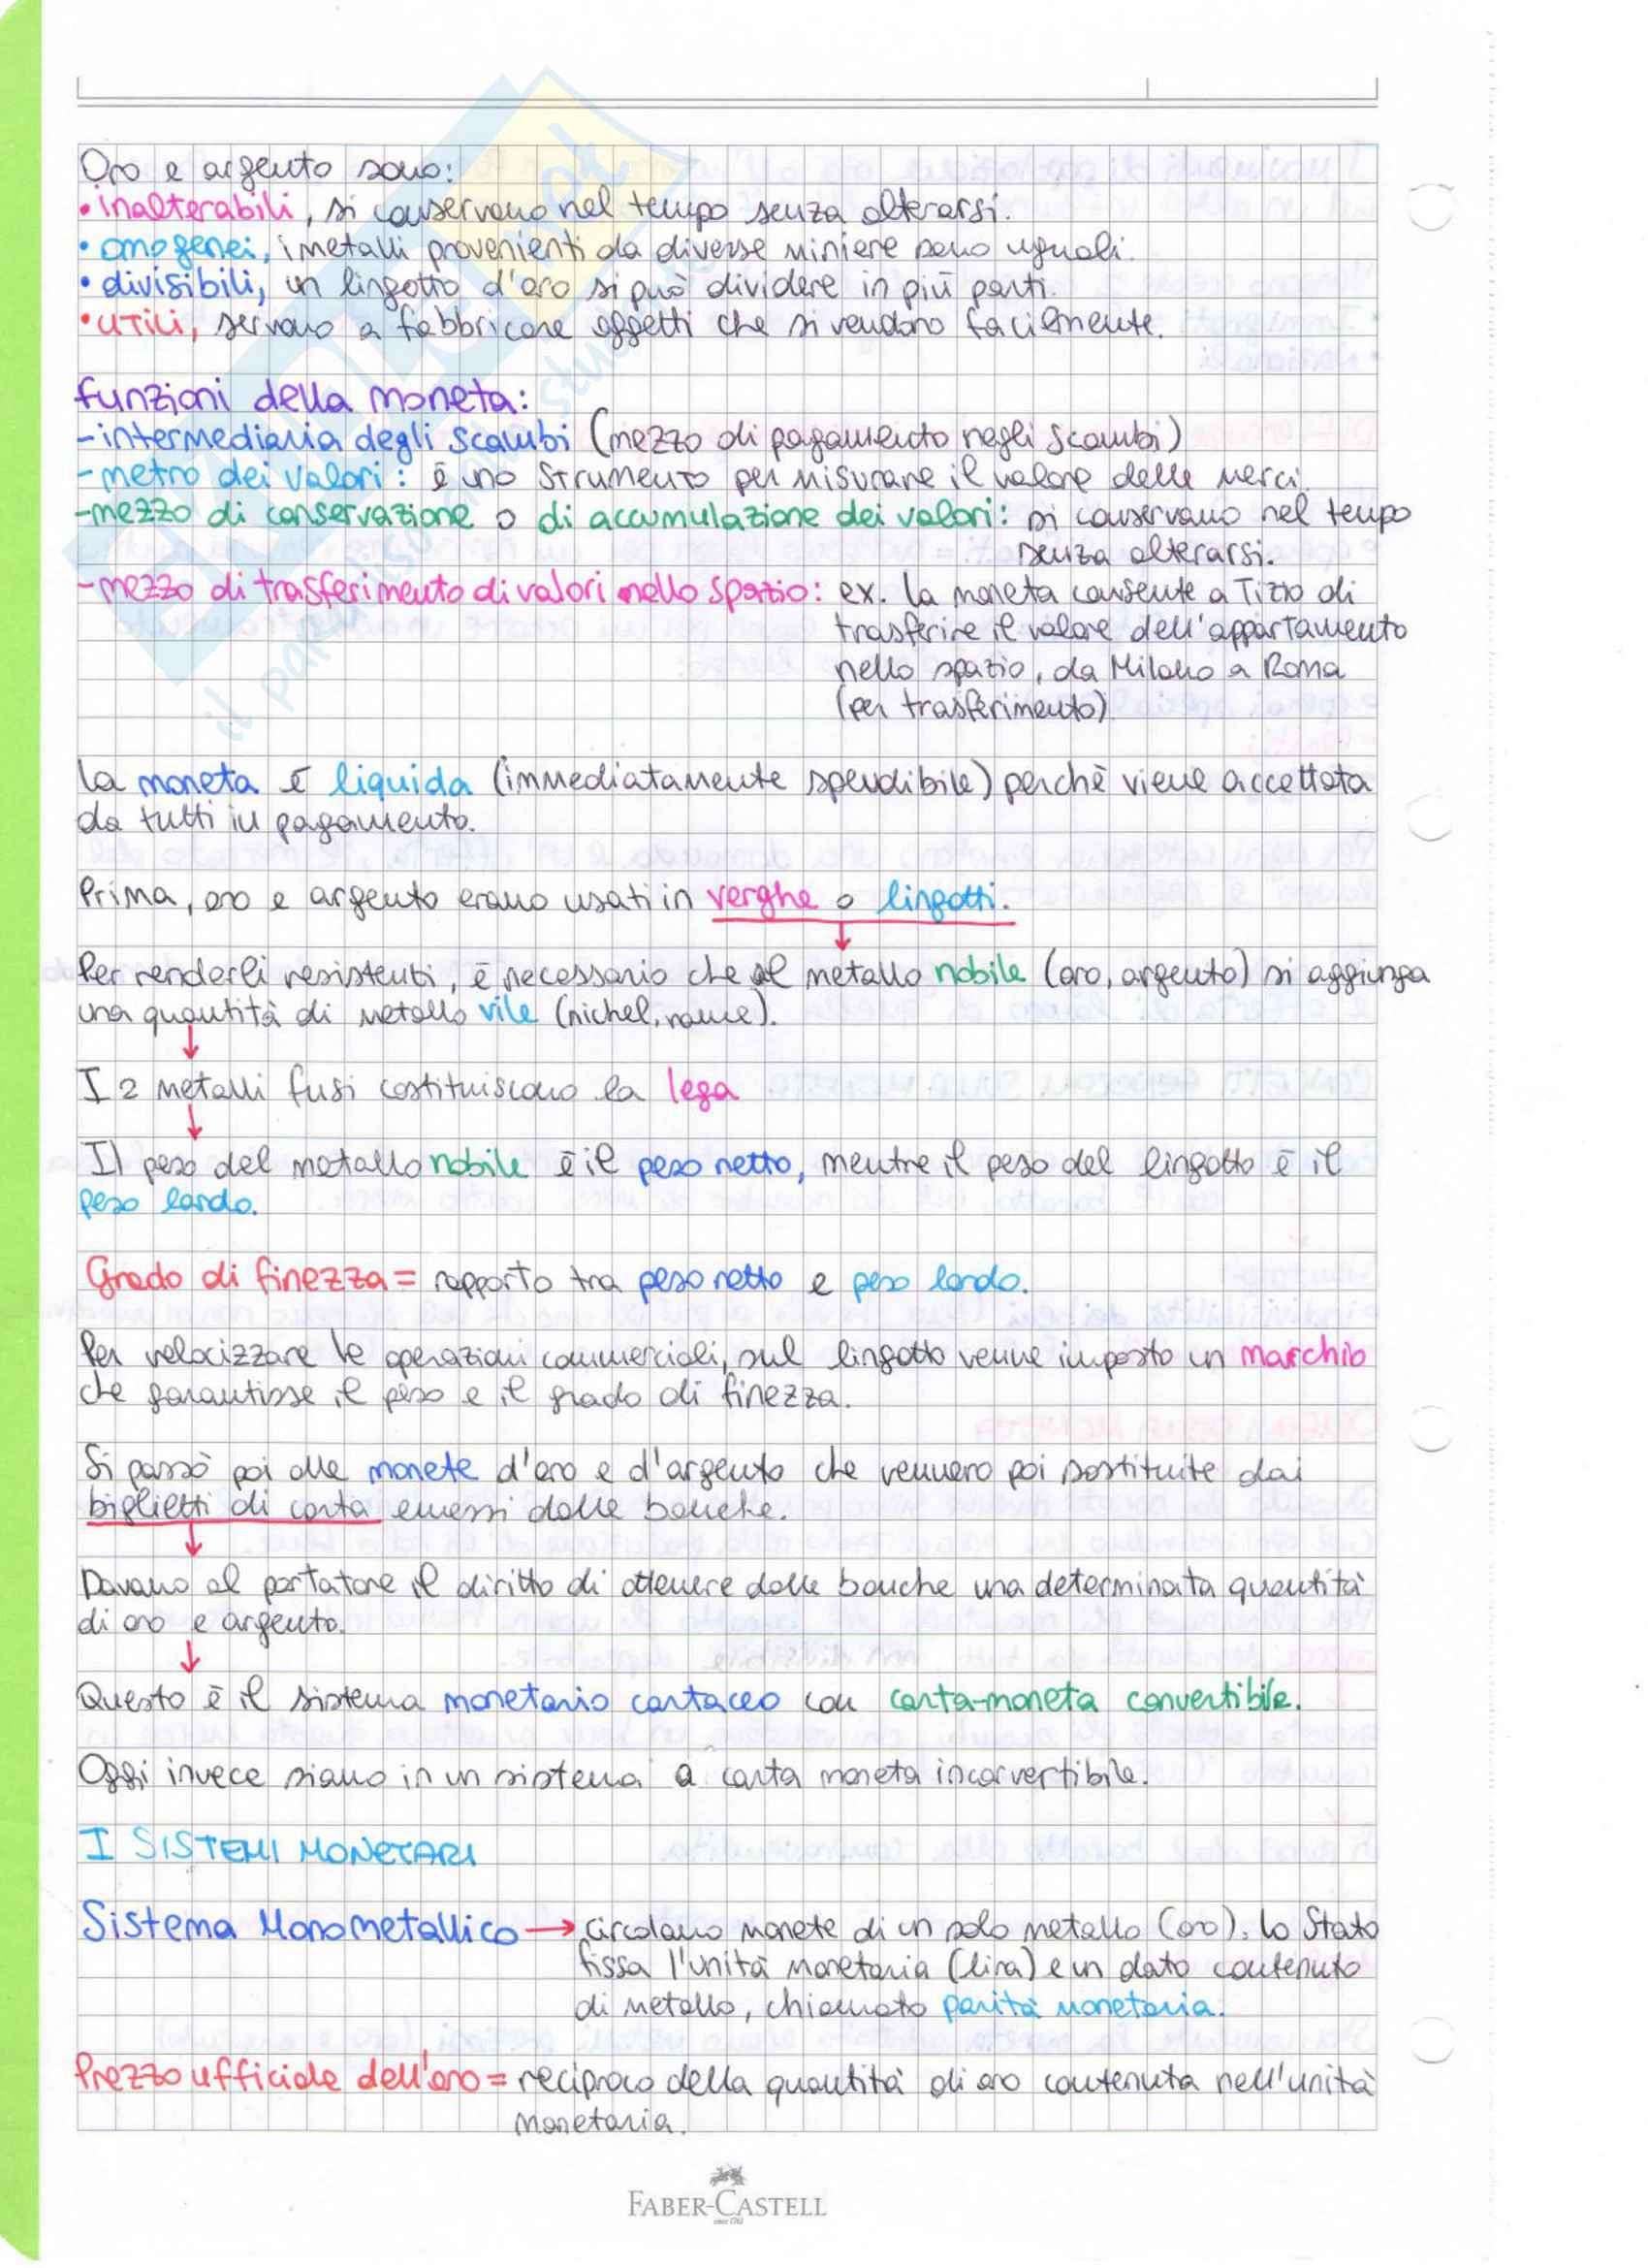 Oro e argento sono:
• inalterabili, si conservano nel tempo senza alterarsi.
• omogenei, i metalli provenienti da diverse miniere sono uguali.
• divisibili, un lingotto d'oro si può dividere in più parti.
• utili, servono a fabbricare oggetti che si vendono facilmente.
funzioni della moneta:
- intermediaria degli scambi (mezzo di pagamento negli scambi)
- metro dei valori: è uno strumento per misurare il valore delle merci.
- mezzo di conservazione o di accumulazione dei valori: si conservano nel tempo
senza alterarsi.
- mezzo di trasferimento di valori nello spazio: ex. la moneta consente a Tizio di
trasferire il valore dell'appartamento
nello spazio, da Milano a Roma
(per trasferimento)
La moneta è liquida (immediatamente spendibile) perchè viene accettata
da tutti in pagamento.
Prima, oro e argento erano usati in verghe o lingotti.
↓
Per renderli resistenti, è necessario che al metallo nobile (oro, argento) si aggiunga
una quantità di metallo vile (nichel, rame).
↓
I 2 metalli fusi costituiscono la lega
↓
Il peso del metallo nobile è il peso netto, mentre il peso del lingotto è il
peso lordo.
Grado di finezza = rapporto tra peso netto e peso lordo.
Per velocizzare le operazioni commerciali, sul lingotto venne imposto un marchio
che garantisse il peso e il grado di finezza.
Si passò poi alle monete d'oro e d'argento che vennero poi sostituite dai
biglietti di carta emessi dalle banche.
↓
Davano al portatore il diritto di ottenere dalle banche una determinata quantità
di oro e argento.
↓
Questo è il sistema monetario cartaceo con carta-moneta convertibile.
Oggi invece siamo in un sistema a carta moneta inconvertibile.
I SISTEMI MONETARI
Sistema Monometallico → circolano monete di un solo metallo (oro). Lo Stato
fissa l'unità monetaria (lira) e un dato contenuto
di metallo, chiamato parità monetaria.
Prezzo ufficiale dell'oro = reciproco della quantità di oro contenuta nell'unità
monetaria.
FABER-CASTELL